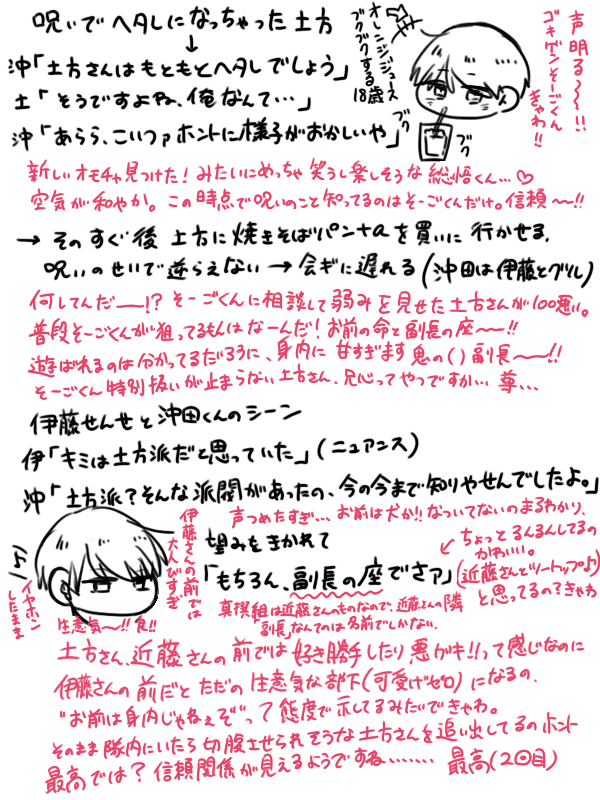 呪いでヘタレになっちゃった土方
↓
沖「土方さんはもともとヘタレでしょう」
土「そうですよね、俺なんて…」
沖「あらら、こいつァホントに様子がおかしいや」
オレンジジュース
ブクブクする
18歳
ブク
ブク
声明る〜〜!!
ゴキゲンそーごくん
きゃわ!!
新しいオモチャ見つけた!みたいにめっちゃ笑うし楽しそうな総悟くん…♡
空気が和やか。この時点で呪いのこと知ってるのはそーごくんだけ。信頼〜!!
→そのすぐ後土方に焼きそばパンナムを買いに行かせる。
呪いのせいで逆らえない→会ギに遅れる(沖田は伊藤とグル)
何してんだ――!?そーごくんに相談して弱みを見せた土方さんが100悪い。
普段そーごくんが狙ってるもんはなーんだ!お前の命と副長の座〜〜!!
遊ばれるのは分かってるだろうに、身内に甘すぎます鬼の()副長〜〜!!
そーごくん特別扱いが止まらない土方さん、兄心ってやつですか…尊…
伊藤せんせと沖田くんのシーン
伊「キミは土方派だと思っていた」(ニュアンス)
沖「土方派?そんな派閥があったの、今の今まで知りやせんでしたよ。」
声つめたすぎ…お前は犬か!!なついてないのまるわかり、
伊藤さんの前では
大人びすぎ
イヤホン
したまま
生意気〜!!良!!
望みをきかれて
「もちろん、副長の座でさァ」
ちょっとるんるんしてるの
かわいい。
(近藤さんとツートップ♪)
と思ってるの?きゃわ
真撰組は近藤さんのものなので、近藤さんの隣
「副長」なんてのは名前でしかない。
土方さん、近藤さんの前では好き勝手したり悪ガキ!!って感じなのに
伊藤さんの前だとただの生意気な部下(可愛げゼロ)になるの、
"お前は身内じゃねぇぞ"って態度で示してるみたいできゃわ。
そのまま隊内にいたら切腹させられそうな土方さんを追い出してるのホント
最高では?信頼関係が見えるようですね……… 最高(2回目)